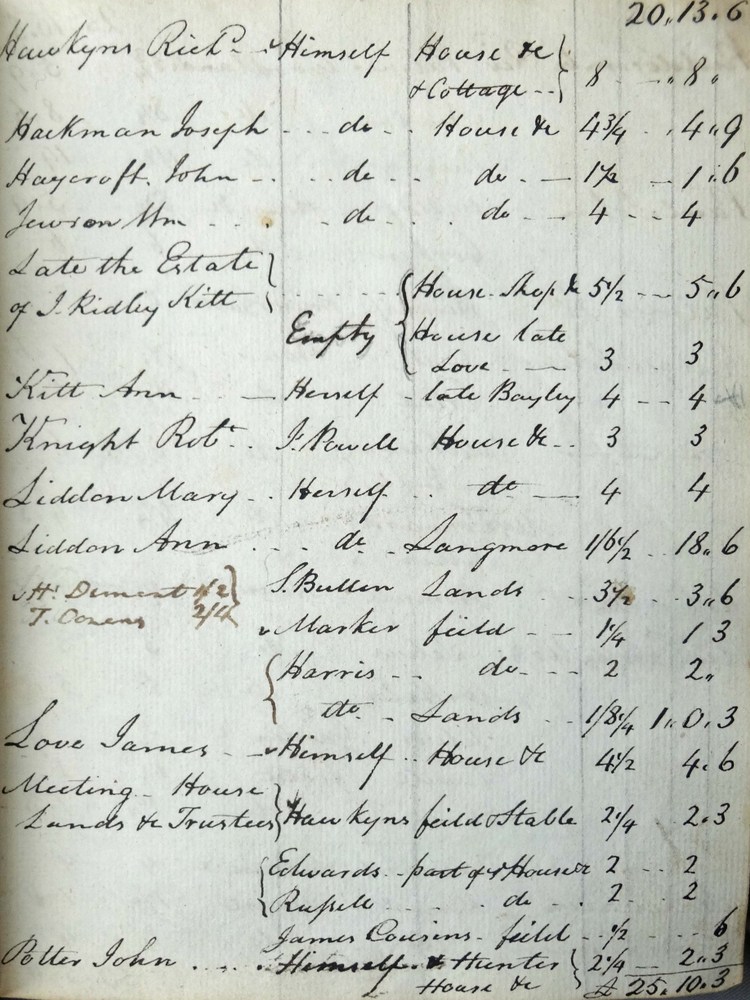 20,,13,,6
Hawkyns Richd. Himself House &c
& Cottage -- 8 ,, 8 ,,
Hackman Joseph - - do - - House &c 4 3/4 - 4,,9
Haycroft. John - - do - - do - 1 1/2 - 1,,6
Jewson Wm - - do - - do - 4 - - 4
Late the Estate
of J. Ridley Kitt House Shop &c 5 1/2 - - 5,,6
Empty House late
Love - - 3 3
Kitt Ann - - Herself - late Bayley 4 - - 4
Knight Robt. - J. Powell House &c - 3 3
Liddon Mary - Herself - do - 4 4
Liddon Ann - - do - Langmore 1/6 1/2 - 18,,6
Ht. Diment 1/2 S. Bullen Lands - - 3 1/2 - 3,,6
T. Cozens 2/4
Marker feild - - 1 1/4 1 3
Harris - - do - - 2 2,,
do - Lands - - 1/8 1/4 1,,0,,3
Love James - - Himself - House &c 4 1/2 4,,6
Meeting House
Lands &c Trustees Hawkyns feild & Stable 2 1/4 2,,3
Edwards - part of House &c 2 - - 2
Russell - - do - 2 - - 2
James Cousins - feild - 1/2 - - 6
Potter John - - Himself & Hunter 2 1/4 - 2,,3
House &c £ 25,,10,,3